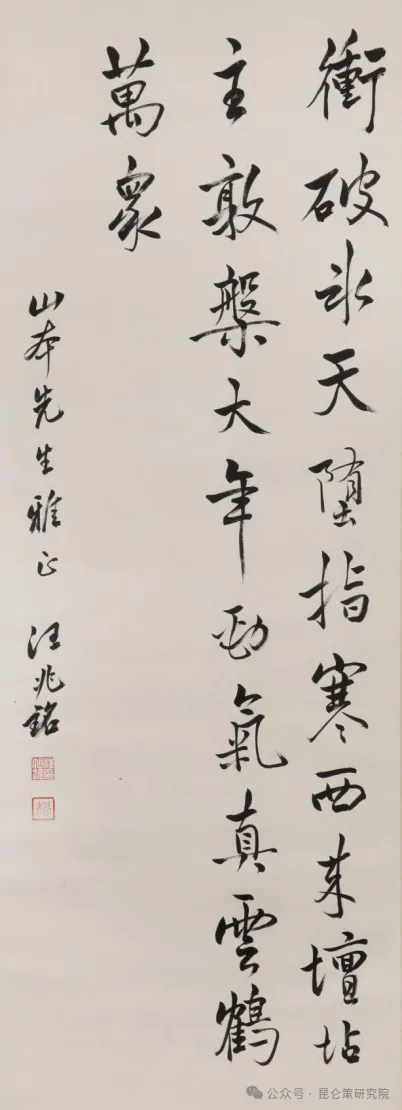 衝破冰天墮指寒西来壇坫
主敦槃大年勁氣真雲鶴
萬衆
山本先生雅正 汪兆銘
公众号·昆仑策研究院